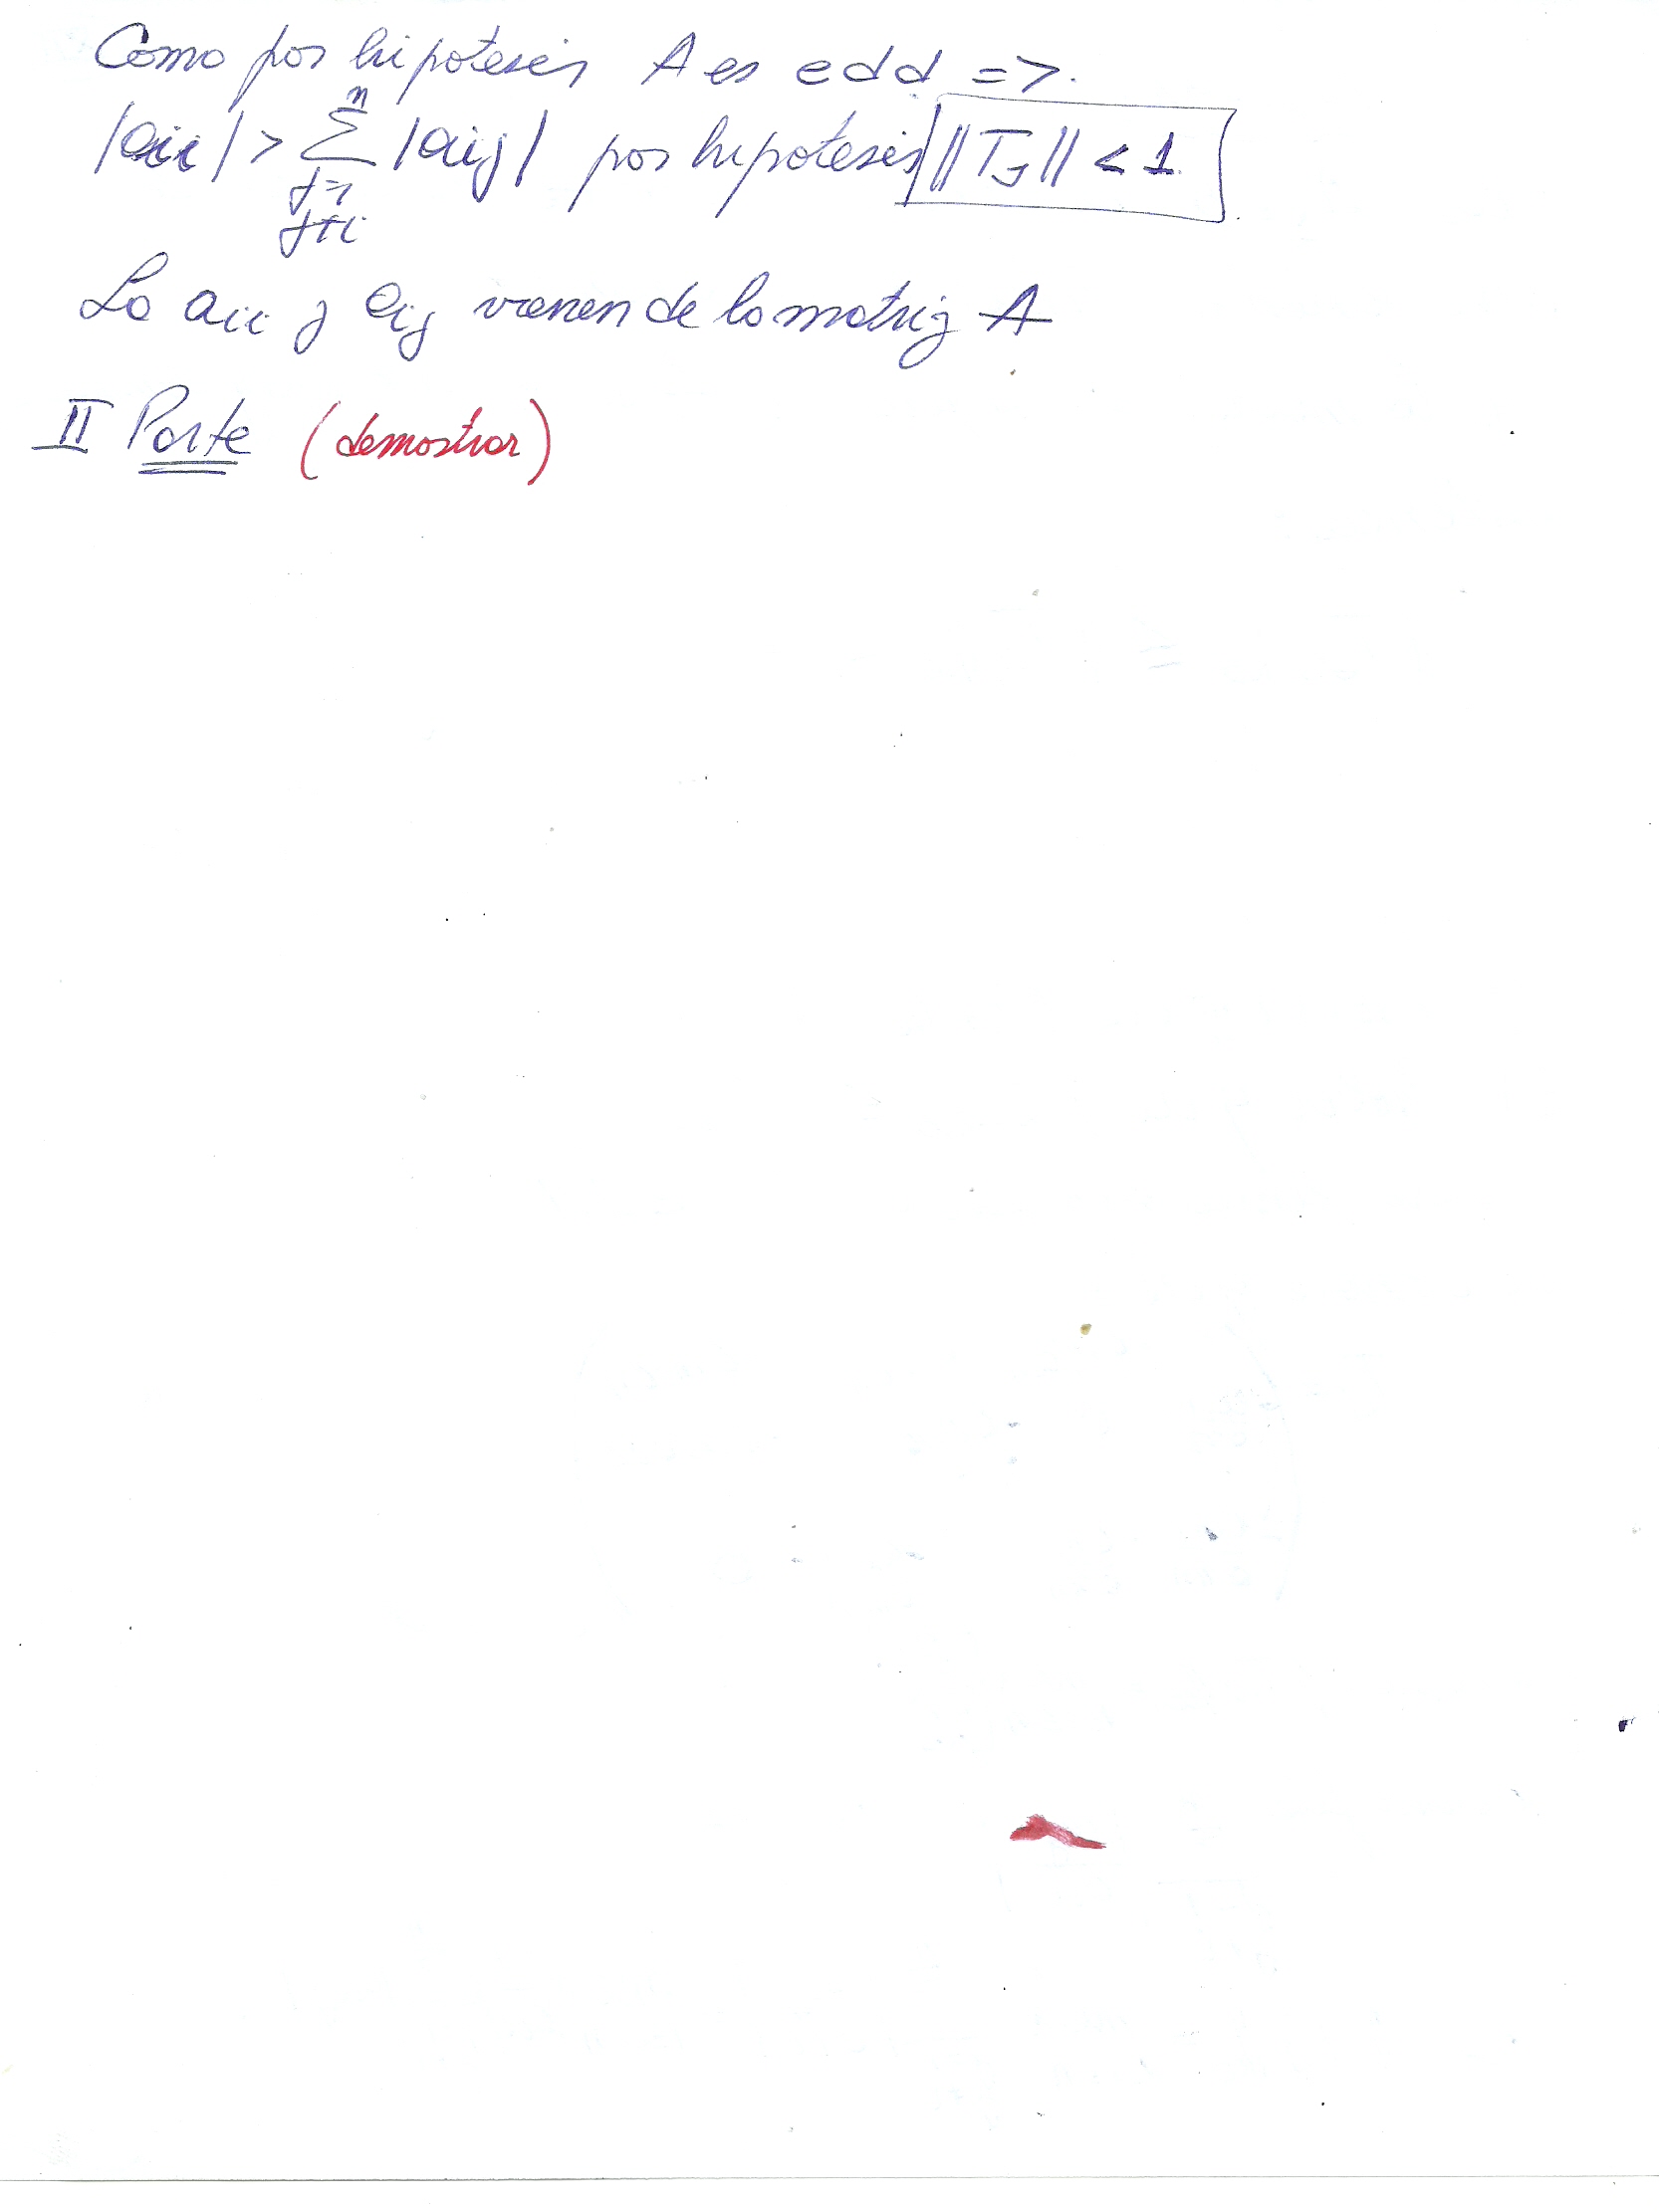 Como por hipótesis A es edd =>.
|aii| > n∑j=1 j≠i |aij| por hipótesis ||TJ|| < 1.
Lo aii y aij vienen de la matriz A
II Parte (demostrar)